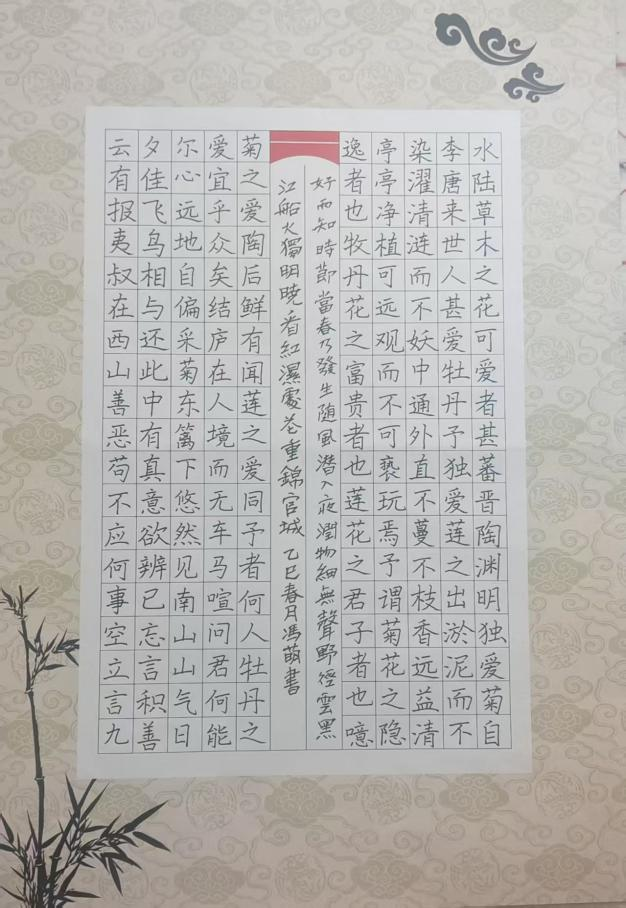 水陆草木之花可爱者甚蕃晋陶渊明独爱菊自
李唐来世人甚爱牡丹予独爱莲之出淤泥而不
染濯清涟而不妖中通外直不蔓不枝香远益清
亭亭净植可远观而不可亵玩焉予谓菊花之隐
逸者也牧丹花之富贵者也莲花之君子者也噫
好雨知時節當春乃發生随風潛入夜潤物細無聲野徑雲黑
江船火獨明曉看紅濕處花重錦官城 乙巳春月馮萌書
菊之爱陶后鲜有闻莲之爱同予者何人牡丹之
爱宜乎众矣结庐在人境而无车马喧问君何能
尔心远地自偏采菊东篱下悠然见南山山气日
夕佳飞鸟相与还此中有真意欲辨已忘言积善
云有报夷叔在西山善恶苟不应何事空立言九